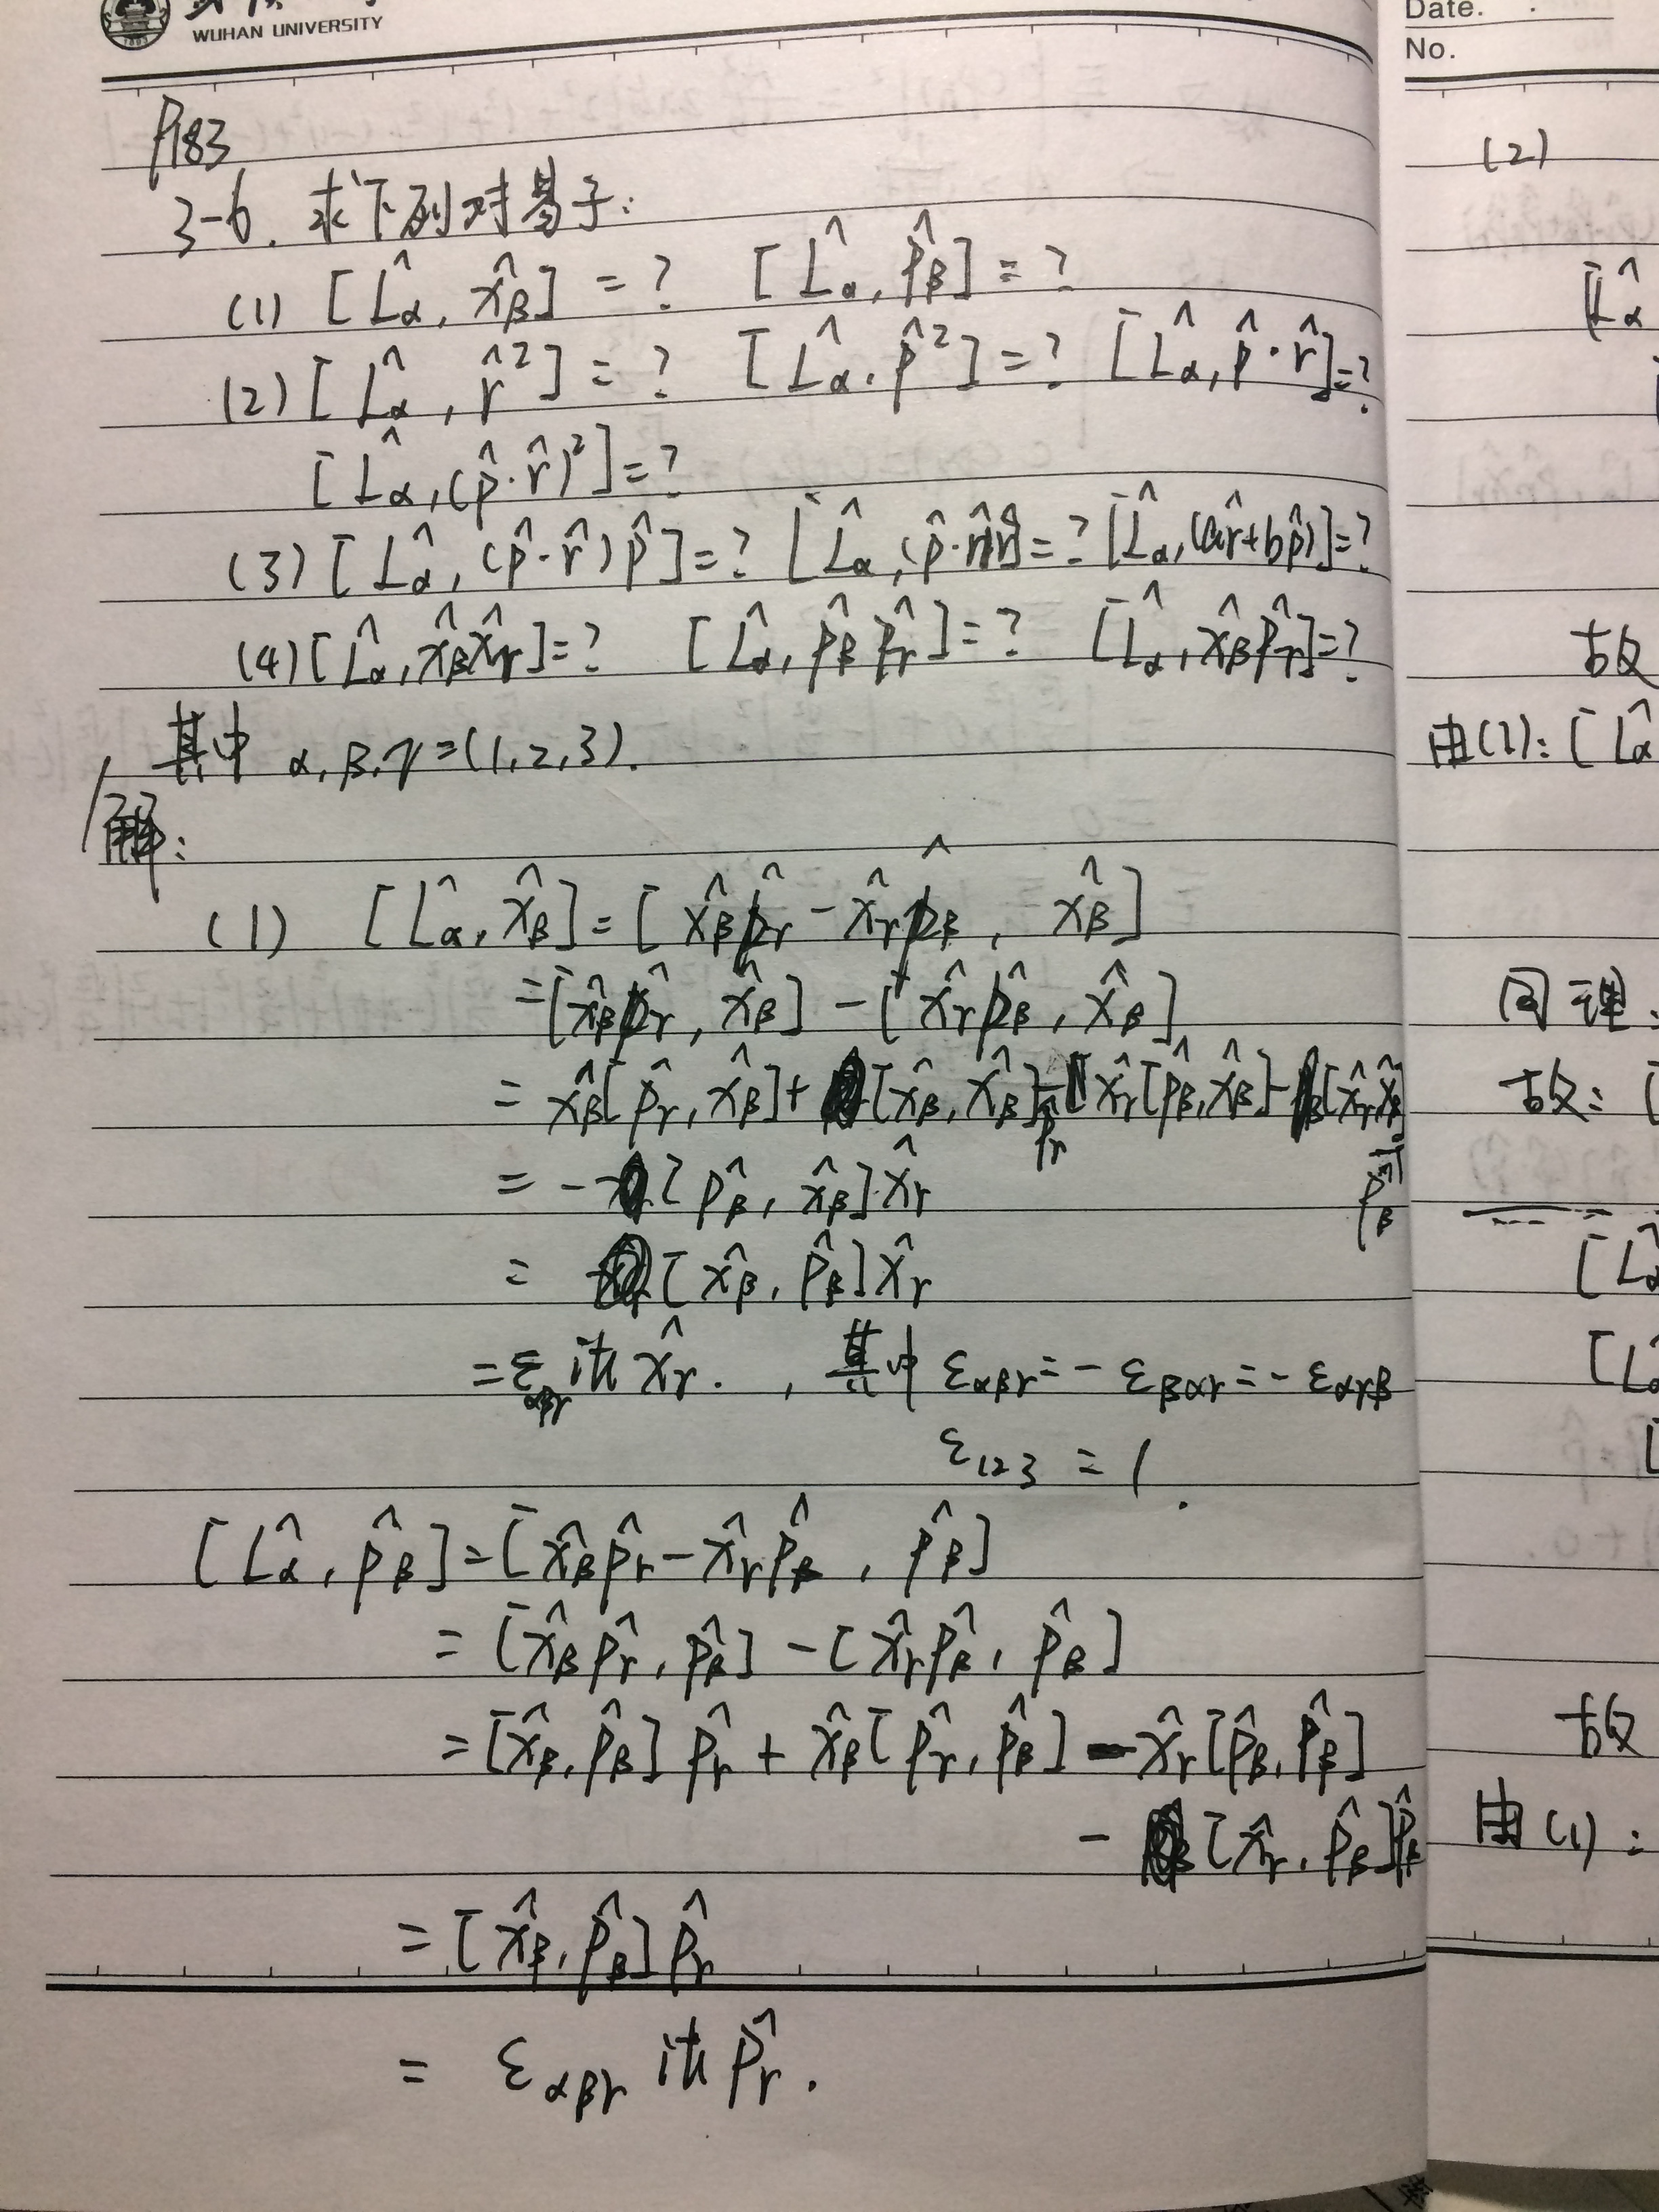 WUHAN UNIVERSITY
P183
3-6. 求下列对易子:
(1) [L̂α, x̂β] = ? [L̂α, p̂β] = ?
(2) [L̂α, r̂²] = ? [L̂α, p̂²] = ? [L̂α, p̂·r̂] = ?
[L̂α, (p̂·r̂)²] = ?
(3) [L̂α, (p̂·r̂)p̂] = ? [L̂α, (p̂·r̂)r̂] = ? [L̂α, (ar̂+bp̂)] = ?
(4) [L̂α, x̂βx̂γ] = ? [L̂α, p̂βp̂γ] = ? [L̂α, x̂βp̂γ] = ?
其中 α, β, γ = (1, 2, 3).
解:
(1) [L̂α, x̂β] = [x̂βp̂γ - x̂γp̂β, x̂β]
= [x̂βp̂γ, x̂β] - [x̂γp̂β, x̂β]
= x̂β[p̂γ, x̂β] + [x̂β, x̂β]p̂γ - x̂γ[p̂β, x̂β] - [x̂γ, x̂β]p̂β
= -[p̂β, x̂β]x̂γ
= [x̂β, p̂β]x̂γ
= εαβγ iħ x̂γ. , 其中 εαβγ = -εβαγ = -εαγβ
ε123 = 1.
[L̂α, p̂β] = [x̂βp̂γ - x̂γp̂β, p̂β]
= [x̂βp̂γ, p̂β] - [x̂γp̂β, p̂β]
= [x̂β, p̂β]p̂γ + x̂β[p̂γ, p̂β] - x̂γ[p̂β, p̂β]
- [x̂γ, p̂β]p̂β
= [x̂β, p̂β]p̂γ
= εαβγ iħ p̂γ.
Date.
No.
(2)
[L̂α
故
由(1): [L̂α
同理:
故: [
[L̂α
[Lα
[
故
由(1):